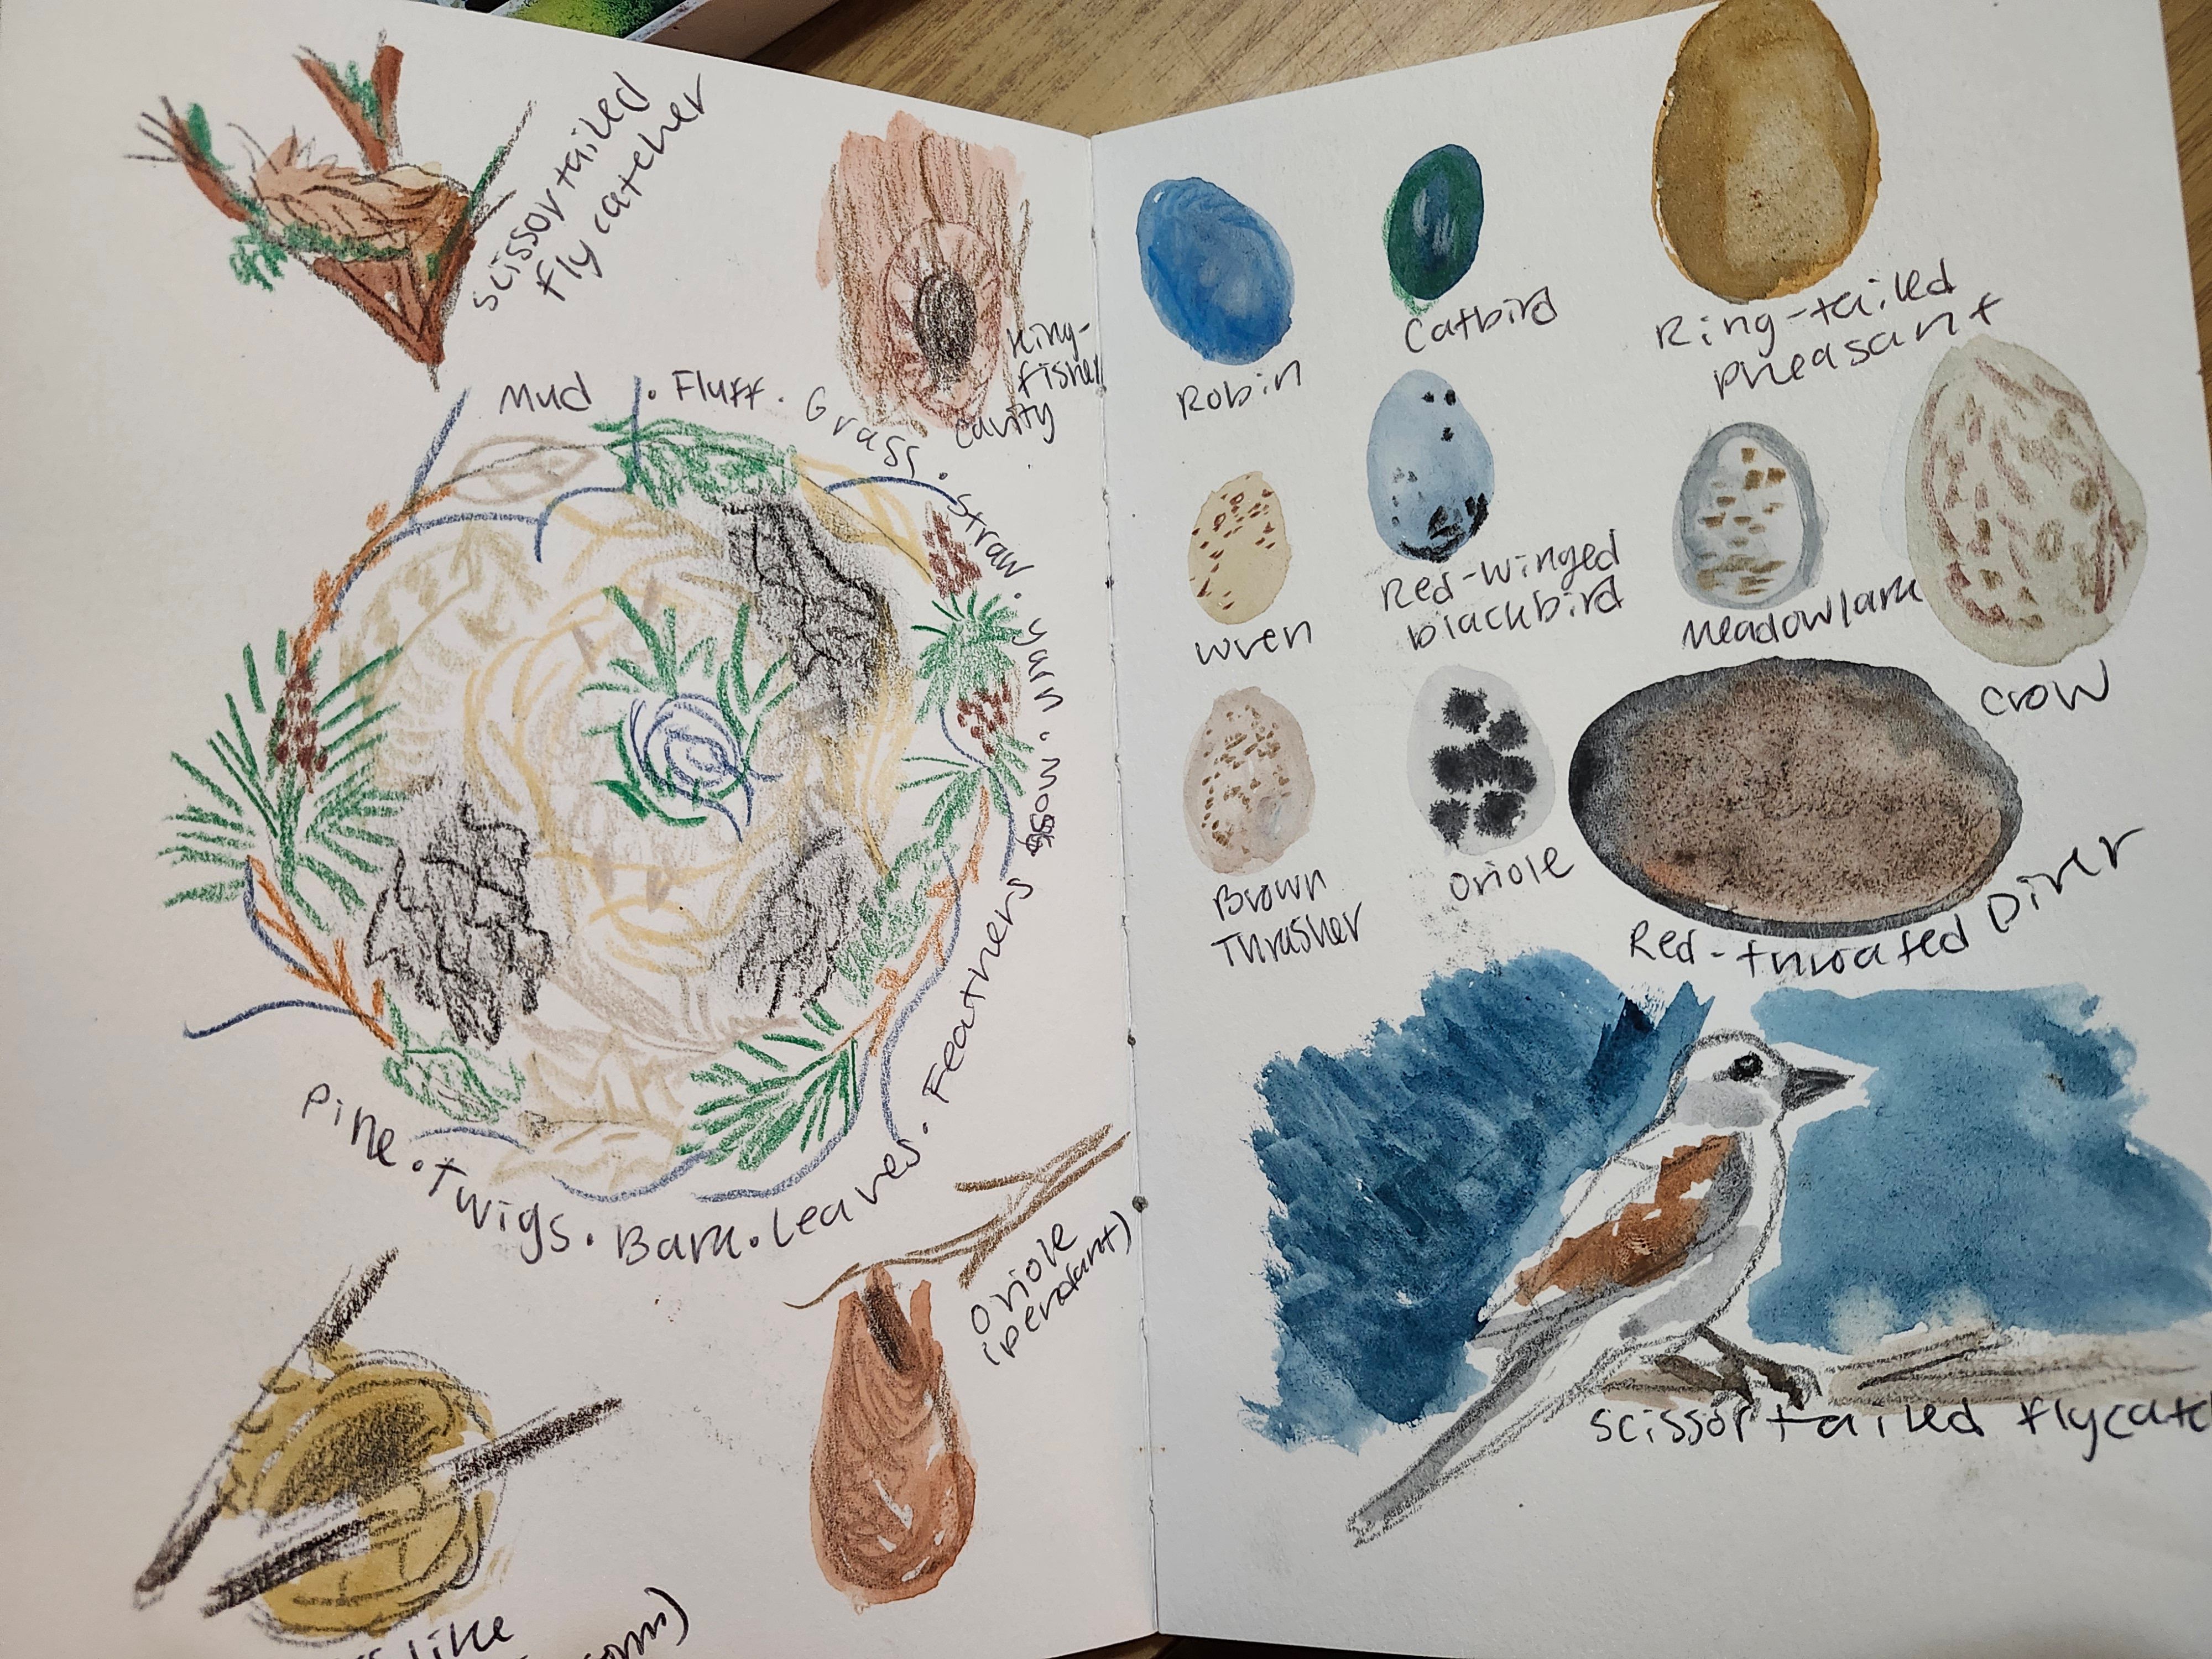 scissor tailed
flycatcher
King-
fisher
cavity
Mud . Fluff . Grass . Straw . yarn . moss
Pine . twigs . Bark . leaves . Feathers
Oriole
(pendant)
like
Robin
Catbird
Ring-tailed
Pheasant
Wren
Red-winged
blackbird
Meadowlark
Crow
Brown
Thrasher
Oriole
Red-throated Diver
Scissor tailed flycatc